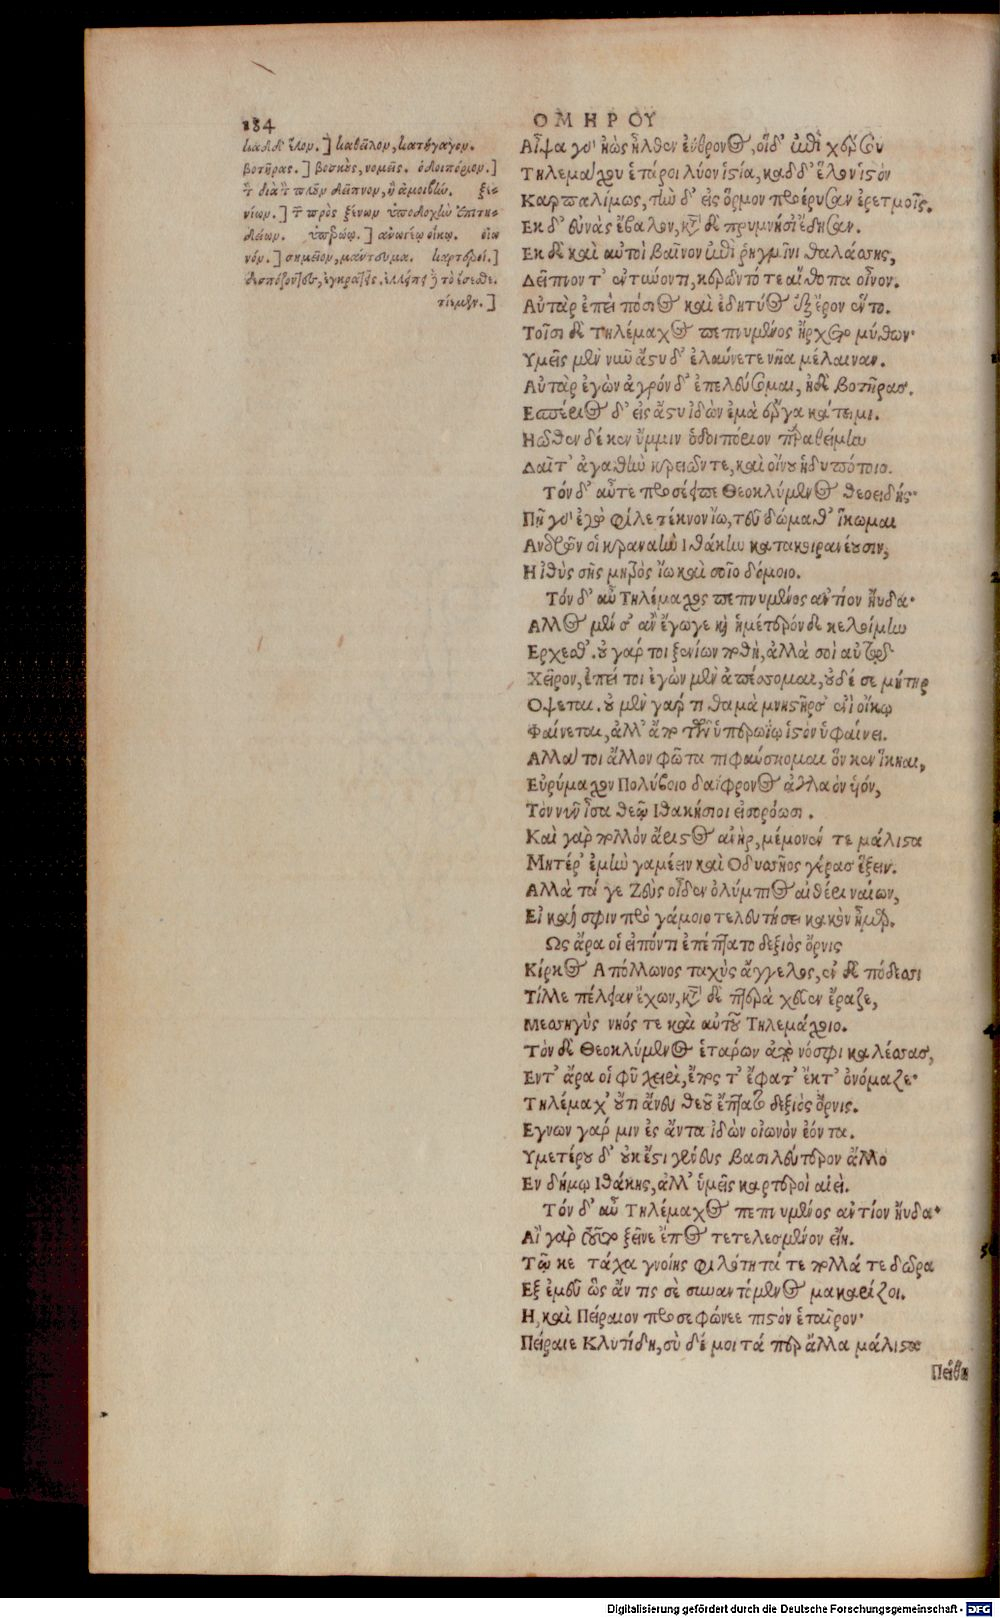 184
ΟΜΗΡΟΥ
καδδ' ἕλον.] καθεῖλον, κατήγαγον.
βοτῆρας.] βοσκὰς, νομεῖς. ὁδοιπόριον.]
τὸ διὰ τὸ πλοῦν δεῖπνον, ἢ ἀμοιβὴν. ξεινίων.]
τῶν πρὸς ξένων ὑποδοχὴν ἐπιτηδείων.
ὑπερώῳ.] ἀνωτέρῳ οἴκῳ. οἰωνόν.]
σημεῖον, μάντευμα. καρτεροί.]
Αἶψα γδ' ἠὼς ἦλθεν ἐύθρονος, οἵδ' ἐπὶ χέρσου
Τηλεμάχου ἑτάροι λύον ἱστία, καδδ' ἕλον ἱστὸν
Καρπαλίμως, τὴν δ' εἰς ὅρμον προέρυσαν ἐρετμοῖς.
Εκ δ' εὐνὰς ἔβαλον, κατὰ δὲ πρυμνήσι' ἔδησαν.
Εκ δὲ καὶ αὐτοὶ βαῖνον ἐπὶ ῥηγμῖνι θαλάσσης,
Δεῖπνον τ' ἐντύνοντι, κερῶντό τε αἴθοπα οἶνον.
Αὐτὰρ ἐπεὶ πόσιος καὶ ἐδητύος ἐξ ἔρον ἕντο.
Τοῖσι δὲ Τηλέμαχος πεπνυμένος ἤρχετο μύθων·
Υμεῖς μὲν νῦν ἄστυ δ' ἐλαύνετε νῆα μέλαιναν.
Αὐτὰρ ἐγὼν ἀγρόν δ' ἐπελεύσομαι, ἠδὲ βοτῆρας.
Εσπέριος δ' εἰς ἄστυ ἰδὼν ἐμὰ ἔργα κάτειμι.
Ηῶθεν δέ κεν ὔμμιν ὁδοιπόριον παραθείμην
Δαῖτ' ἀγαθὴν κρειῶν τε, καὶ οἴνου ἡδυπότοιο.
Τόν δ' αὖτε προσέειπε Θεοκλύμενος θεοειδής·
Πῆ γδ' ἐγὼ φίλε τέκνον ἴω, τεῦ δώμαθ' ἵκωμαι
Ανδρῶν οἱ κραναὴν Ιθάκην κατακοιρανέουσιν,
Η ἰθὺς σῆς μητρὸς ἴω καὶ σοῖο δόμοιο.
Τόν δ' αὖ Τηλέμαχος πεπνυμένος ἀντίον ἤυδα·
Αλλος μέν σ' ἂν ἔγωγε καὶ ἡμέτερόνδε κελοίμην
Ερχεσθ'. οὐ γάρ τοι ξενίων ποθὴ, ἀλλὰ σοὶ αὐτῷ
Χεῖρον, ἐπεί τοι ἐγὼν μὲν ἀπέσσομαι, οὐδέ σε μήτηρ
Οψεται. οὐ μὲν γάρ τι θαμὰ μνηστῆρσ' ἐνὶ οἴκῳ
Φαίνεται, ἀλλ' ἄπο τῶν ὑπερωΐῳ ἱστὸν ὑφαίνει.
Αλλά τοι ἄλλον φῶτα πιφαύσκομαι ὅν κεν ἵκηαι,
Εὐρύμαχον Πολύβοιο δαΐφρονος ἀγλαὸν υἱόν,
Τὸν νῦν ἶσα θεῷ Ιθακήσιοι εἰσορόωσι.
Καὶ γὰρ πολλὸν ἄριστος ἀνὴρ, μέμονέν τε μάλιστα
Μητέρ' ἐμὴν γαμέειν καὶ Οδυσσῆος γέρας ἕξειν.
Αλλὰ τά γε Ζεὺς οἶδεν ὀλύμπιος αἰθέρι ναίων,
Εἰ καί σφιν πρὸ γάμοιο τελευτήσει κακὸν ἦμαρ.
Ως ἄρα οἱ εἰπόντι ἐπέπτατο δεξιὸς ὄρνις
Κίρκος Απόλλωνος ταχὺς ἄγγελος, ἐν δὲ πόδεσσι
Τίλλε πέλειαν ἔχων, κατὰ δὲ πτερὰ χεῦεν ἔραζε,
Μεσσηγὺς νηός τε καὶ αὐτοῦ Τηλεμάχοιο.
Τὸν δὲ Θεοκλύμενος ἑταρων ἀπὸ νόσφι καλέσσας,
Εντ' ἄρα οἱ φῦ χειρὶ, ἔπος τ' ἔφατ' ἔκ τ' ὀνόμαζε·
Τηλέμαχ' οὔτι ἄνευ θεοῦ ἔπτατο δεξιὸς ὄρνις.
Εγνων γάρ μιν ἐς ἄντα ἰδὼν οἰωνὸν ἐόντα.
Υμετέρου δ' οὐκ ἔστι γένευς βασιλεύτερον ἄλλο
Εν δήμῳ Ιθάκης, ἀλλ' ὑμεῖς καρτεροὶ αἰεὶ.
Τόν δ' αὖ Τηλέμαχος πεπνυμένος ἀντίον ἤυδα·
Αἲ γὰρ τοῦτο ξεῖνε ἔπος τετελεσμένον εἴη.
Τῷ κε τάχα γνοίης φιλότητά τε πολλά τε δῶρα
Εξ ἐμεῦ ὡς ἄν τις σὲ συναντόμενος μακαρίζοι.
Η, καὶ Πείραιον προσεφώνεε πιστὸν ἑταῖρον·
Πείραιε Κλυτίδη, σὺ δέ μοι τά περ ἄλλα μάλιστα
Πείθη
Digitalisierung gefördert durch die Deutsche Forschungsgemeinschaft - DFG